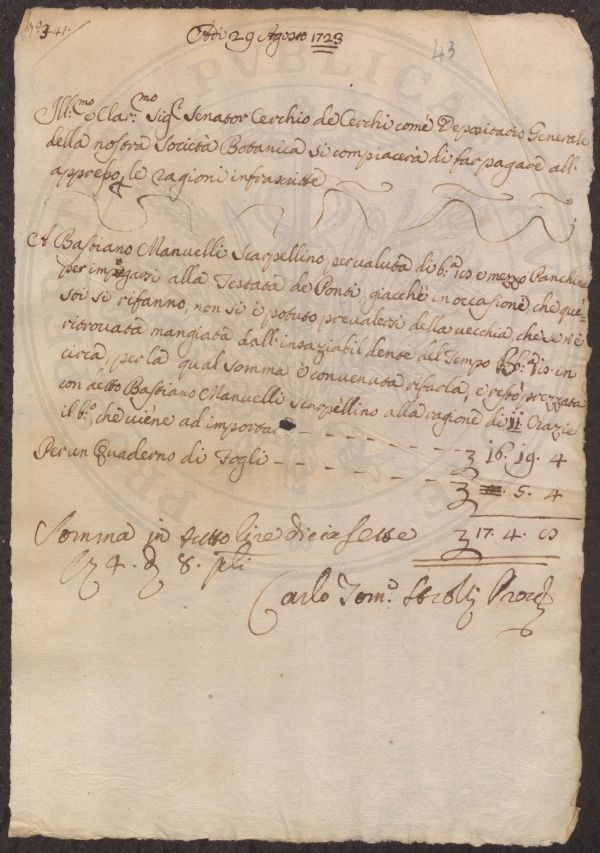 N.o 341.
Adi 29 Agosto 1723
43
Ill:mo e Clar:mo Sig.r Senator Cerchio de Cerchi come Depositario Generale
della nostra Società Botanica si compiacerà di far pagare all'
appresso le ragioni infrascritte
A Bastiano Manuelli Scarpellino per valuta di b:a e mezzo Panchina
per impiegarsi alla Testata de Ponti, giacchè in occasione, che que-
sti si rifanno, non si è potuto prevalersi della vecchia, che se n'è
ritrovata mangiata dall'insaziabil dente del Tempo in
circa, per la qual somma è convenuta rifarla, e restò prezzata
con detto Bastiano Manuelli Scarpellino alla ragione di 11 Crazie
il b:o, che viene ad importa - - - - - 16. 19. 4
Per un Quaderno di Fogli - - - - - 5. 4
Somma in tutto lire diciasette 17. 4. 8
4. 8.
Carlo Tom:o
PVBLICA